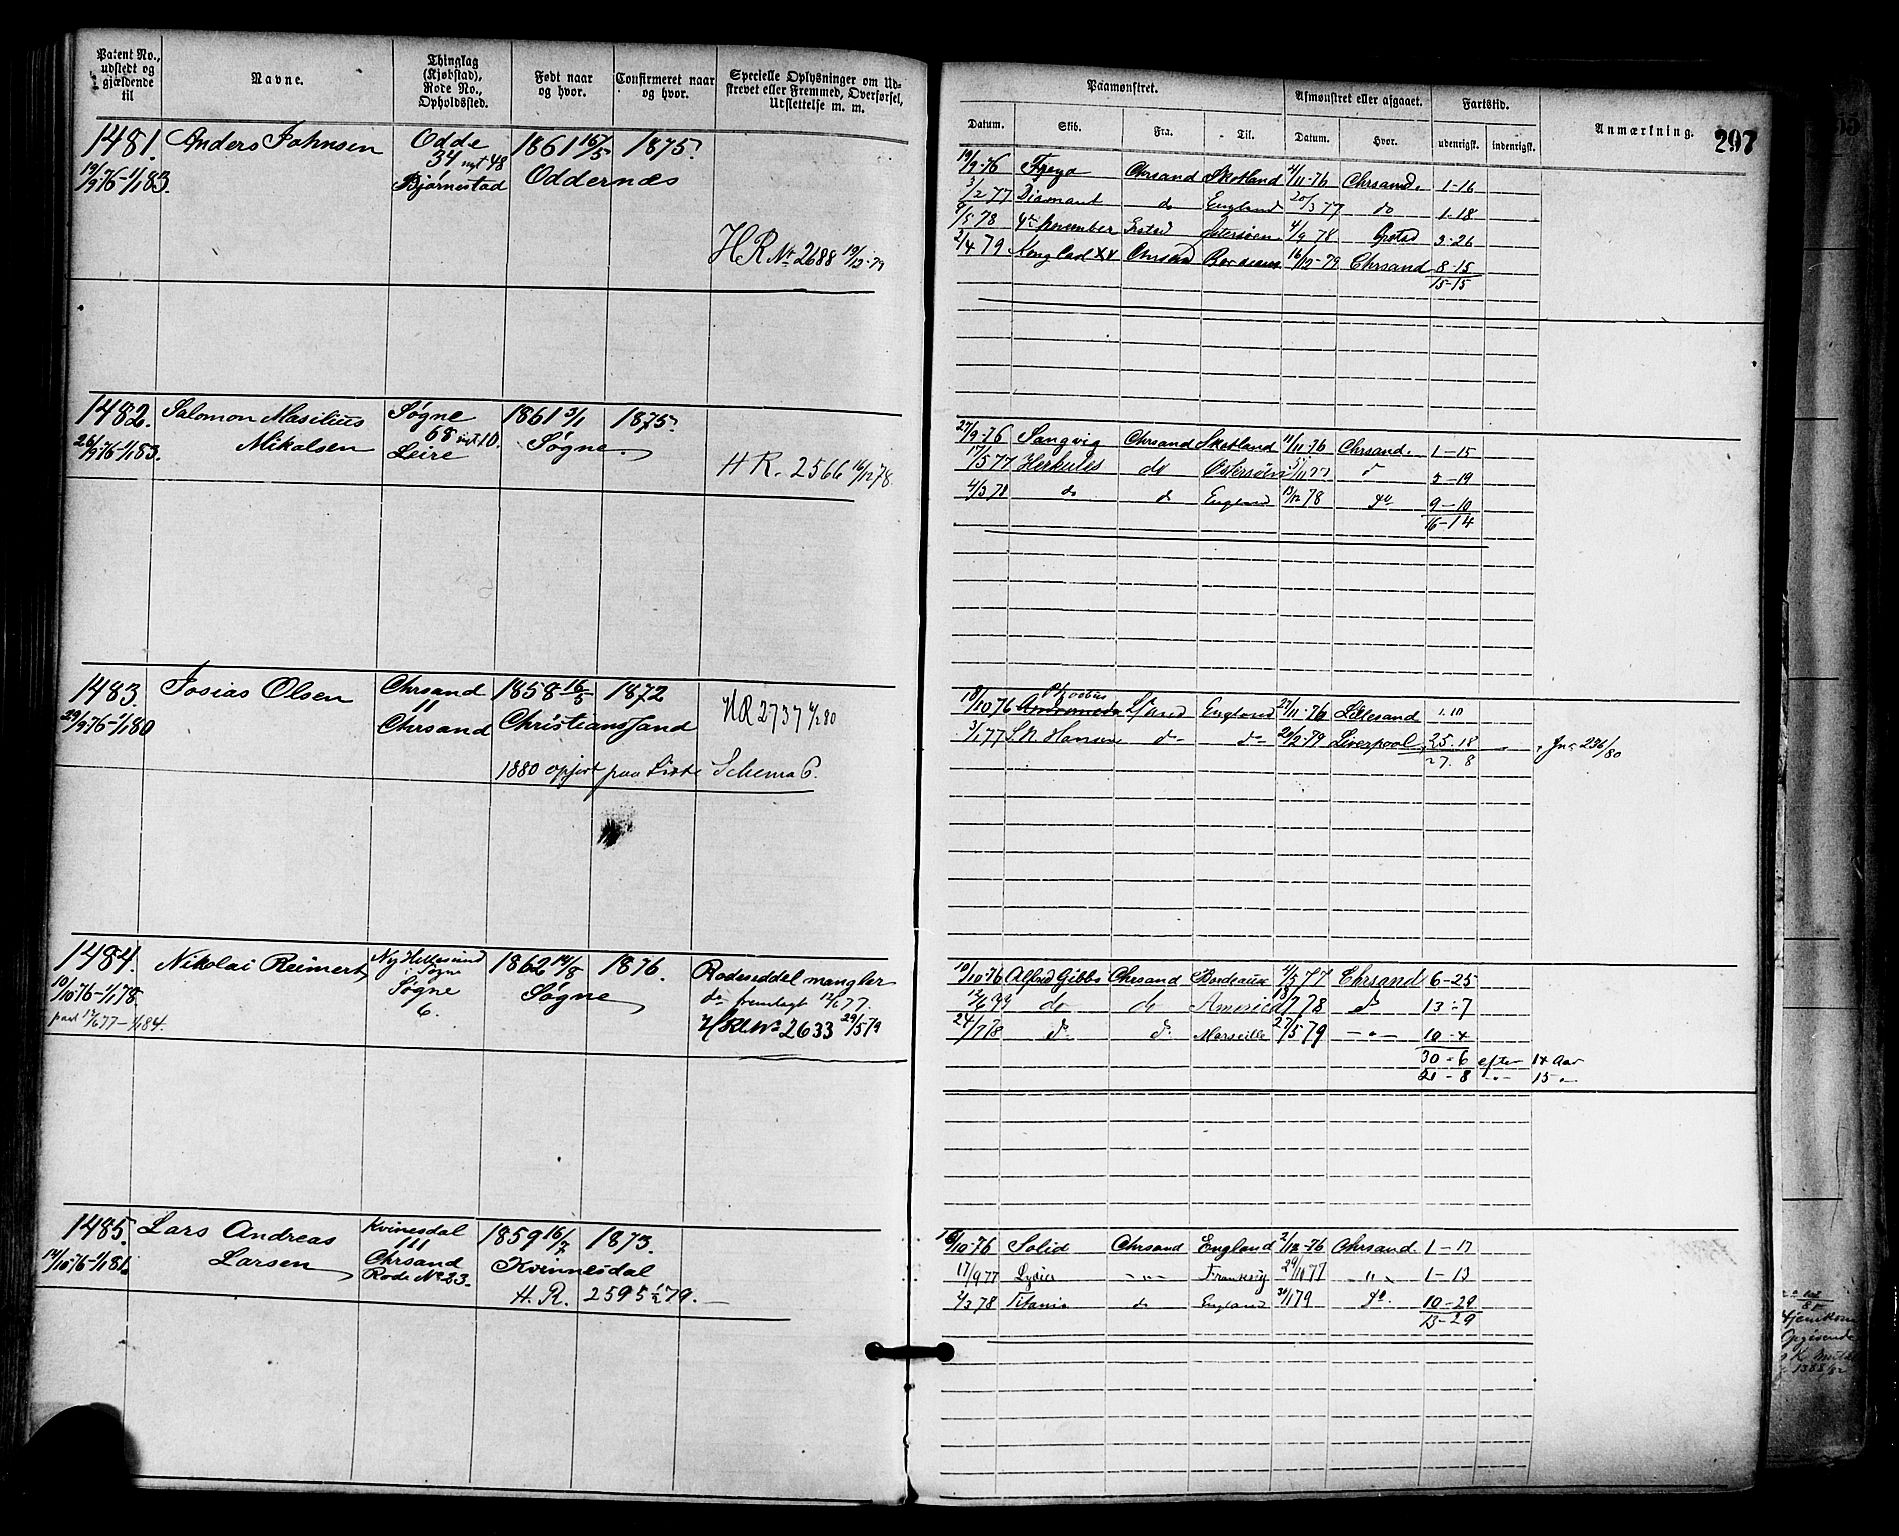 Patent No., udstedt og gjældende til
Navne.
Thinglag (Kjøbstad), Rode No., Opholdssted.
Født naar og hvor.
Confirmeret naar og hvor.
Specielle Oplysninger om Udstrevet eller Fremmed, Overførsel, Udslettelse m. m.
Paamønstret.
Afmønstret eller afgaaet.
Fartstid.
Anmærkning.
297
Datum.
Skib.
Fra.
Til.
Datum.
Hvor.
udenrigsk.
indenrigsk.
1481. Anders Johnsen Odde 1861 16/5 1875.
34 nyt 48
19/9-76-1/1 83. Bjørnestad Oddernæs
HR Nr 2688 19/12-79
19/9-76 Freya Chrsand Skotland 11-76 Chrsand. 1-16
3/2 77 Diamant do England 20/3 77 do 1.18
5 78 4de November 4/9 78 3-26
2/4 79 Chrsand 16/12-79 Chrsand 8-15
15-15
1482. Salomon Masilius Søgne 1861 3/1 1875.
Mikalsen 68 nyt 10. Søgne.
26/9-76-1/1 83. Leire
H R. 2566 16/12 78.
27/9-76 Sangvig Chrsand Skotland 11/11-76 Chrsand. 1-15
17/5 77 Herkules do Østersøen 11 77 d 5-19
4/3 78 do d England 13/12 78 do 9-10
16-14
1483. Josias Olsen Chrsand 1858 16/5 1872
11
29/9 76-1/1 80 Chrsand Christianssand
HR 2737 80
1880 opført paa Liste Schema 6.
18/10 76 Andromeda England 27/11-76 Lillesand 1.10
3/1 77 S. N. Hansen do do 20/2-79 Liverpool 25.18 Jn 236/80
27. 8
1484. Nikolai Reimert Ny Hellesund 1862 14/8 1876. Rodeseddel mangler
i Søgne
10/10 76-1/1 78. Søgne Søgne do fremlagt 12/6 77.
6.
12/6 77-1/1 84. HR No 2633 29/5 79
10/10-76 Alfred Gibbs Chrsand Bordeaux 77 Chrsand 6-25
12/6 do do America 7 78 d 13-7
24/7 78 do do Marseille 27/5 79 10-4
30-6 efter 14 Aar
21-8 15
1485. Lars Andreas Kvinesdal 1859 16/7 1873.
Larsen 111
14/10 76-1/1 81. Chrsand Kvinnesdal
Rode No 23.
H. R. 2595 79.
16/10-76 Solid Chrsand England 2/12-76 Chrsand. 1-17
17/9 77 Lydia 29/10 77 1-13
2/3 78 Titania do England 30/1 79 do. 10-29
13-29